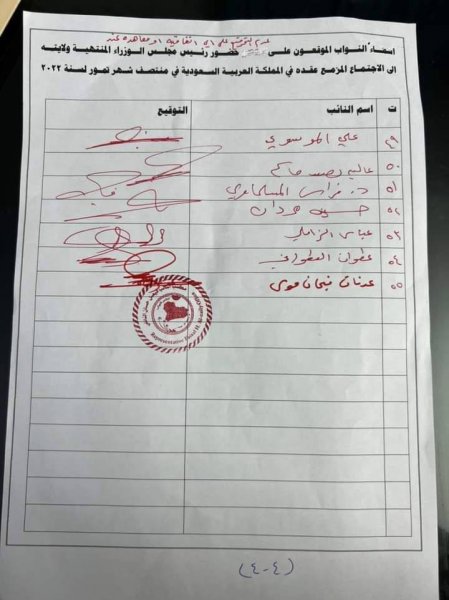 عدم توقيع على اي اتفاقية او معاهدة عند
اسماء النواب الموقعون على حضور رئيس مجلس الوزراء المنتهية ولايته
الى الاجتماع المزمع عقده في المملكة العربية السعودية في منتصف شهر تموز لسنة ٢٠٢٢
ت اسم النائب التوقيع
٤٩ علي الموسوي
٥٠ عالية نصيف جاسم
٥١ د. فراس المسلماوي
٥٢ حسين مردان
٥٣ عباس الزاملي
٥٤ عطوان العطواني
٥٥ عدنان فيحان موسى
(٤-٤)